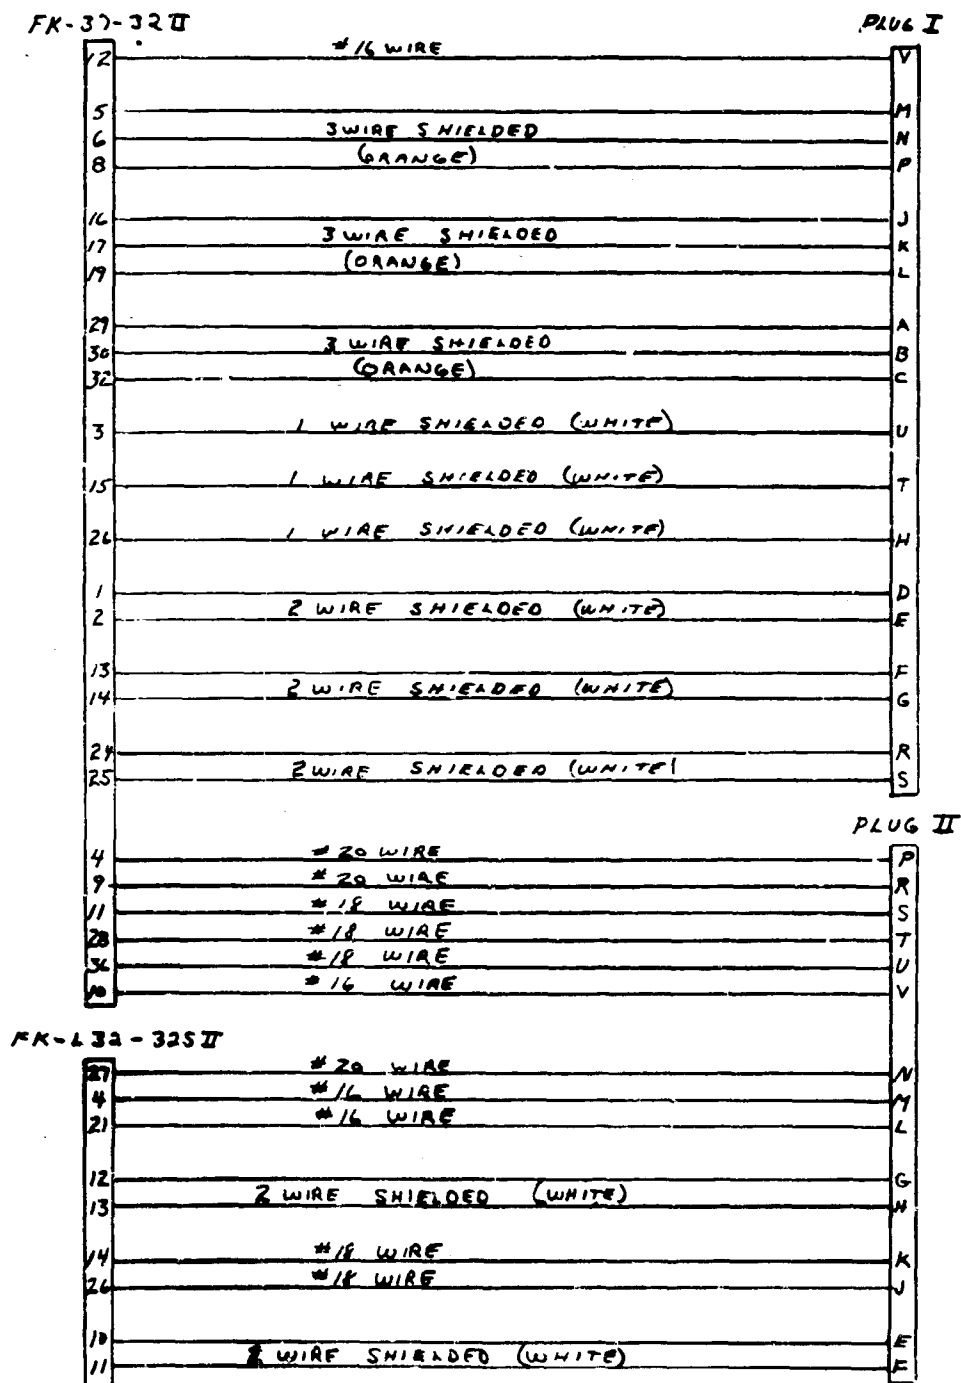 FK-37-32 II PLUG I
12 #16 WIRE V
5 M
3 WIRE SHIELDED
6 N
(ORANGE)
8 P
16 J
3 WIRE SHIELDED
17 K
(ORANGE)
19 L
29 A
3 WIRE SHIELDED
30 B
(ORANGE)
32 C
3 1 WIRE SHIELDED (WHITE) U
15 1 WIRE SHIELDED (WHITE) T
26 1 WIRE SHIELDED (WHITE) H
1 D
2 WIRE SHIELDED (WHITE)
2 E
13 F
2 WIRE SHIELDED (WHITE)
14 G
24 R
2 WIRE SHIELDED (WHITE)
25 S
PLUG II
4 #20 WIRE P
9 #20 WIRE R
11 #18 WIRE S
28 #18 WIRE T
36 #18 WIRE U
10 #16 WIRE V
FK-L32-32S II
#20 WIRE N
4 #16 WIRE M
21 #16 WIRE L
12 G
2 WIRE SHIELDED (WHITE)
13 H
14 #18 WIRE K
26 #18 WIRE J
10 E
WIRE SHIELDED (WHITE)
11 F